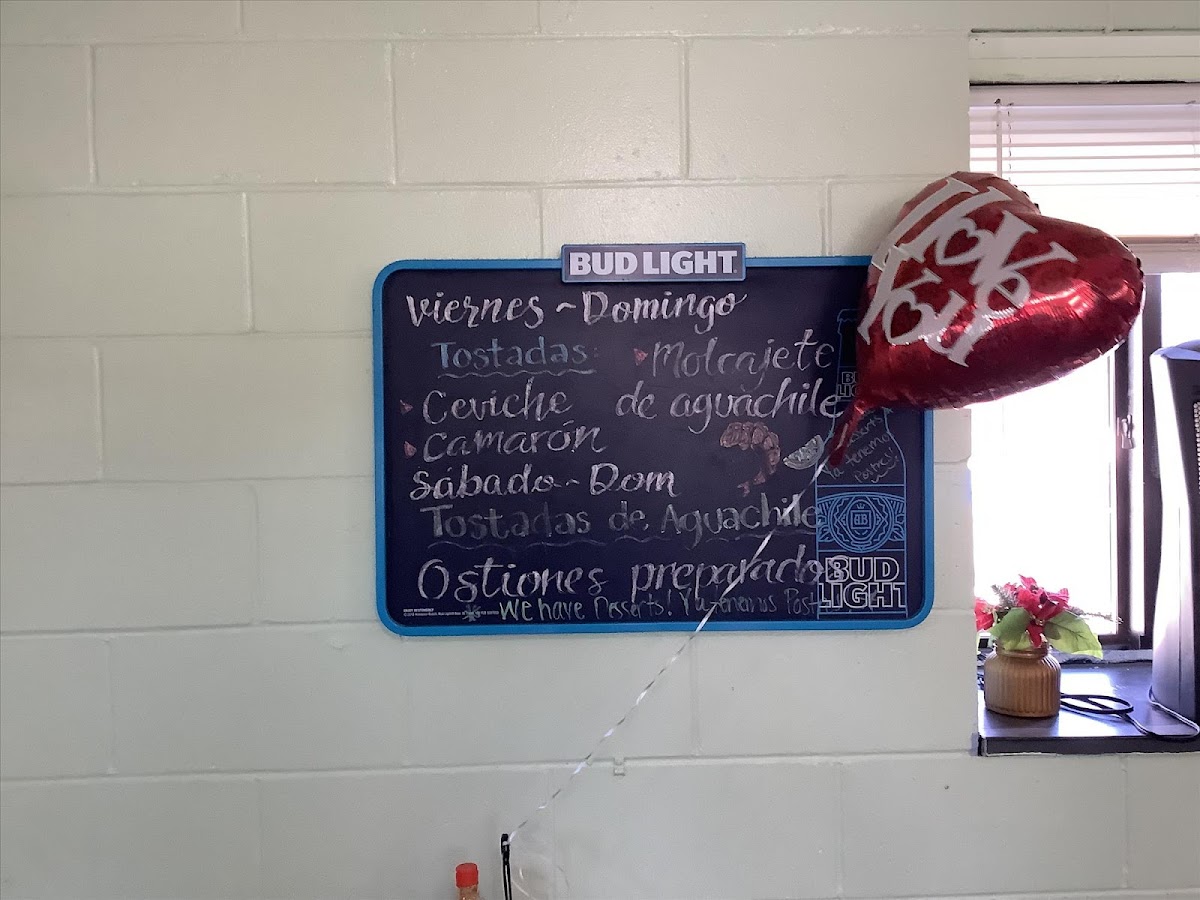 BUD LIGHT
Viernes ~ Domingo
Tostadas:
Ceviche
Camarón
Molcajete
de aguachile
Sábado ~ Dom
Tostadas de Aguachile
Ostiones preparados
We have Desserts! Ya tenemos Post
Ya tenemos
Postres!!
BUD
LIGHT
I LOVE
YOU